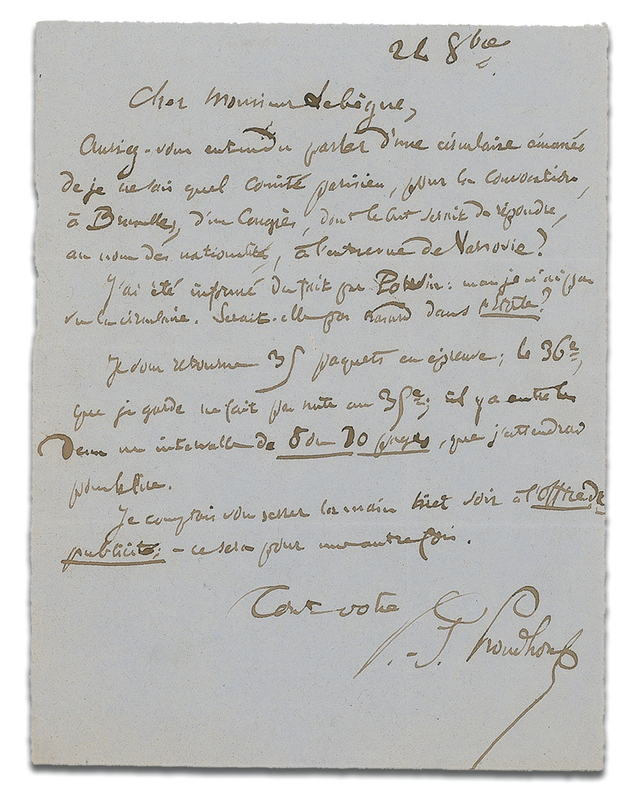 24 8bre
Cher Monsieur Lebègue,
Auriez-vous entendu parler d'une circulaire émanée
de je ne sais quel comité parisien, pour la convocation,
à Bruxelles, d'un Congrès, dont le but serait de répondre,
au nom des nationalités, à l'entrevue de Varsovie?
J'ai été informé du fait par : mais je n'ai pas
vu la circulaire. Serait-elle par hasard dans ?
Je vous retourne 35 paquets en épreuve; le 36e,
que je garde ne fait pas suite au 35e; il y a entre les
deux un intervalle de 8 ou 10 pages, que j'attendrai
pour le lire.
Je comptais vous serrer la main hier soir à l'Office de
publicité; - ce sera pour une autre fois.
Tout votre
P.-J. Proudhon